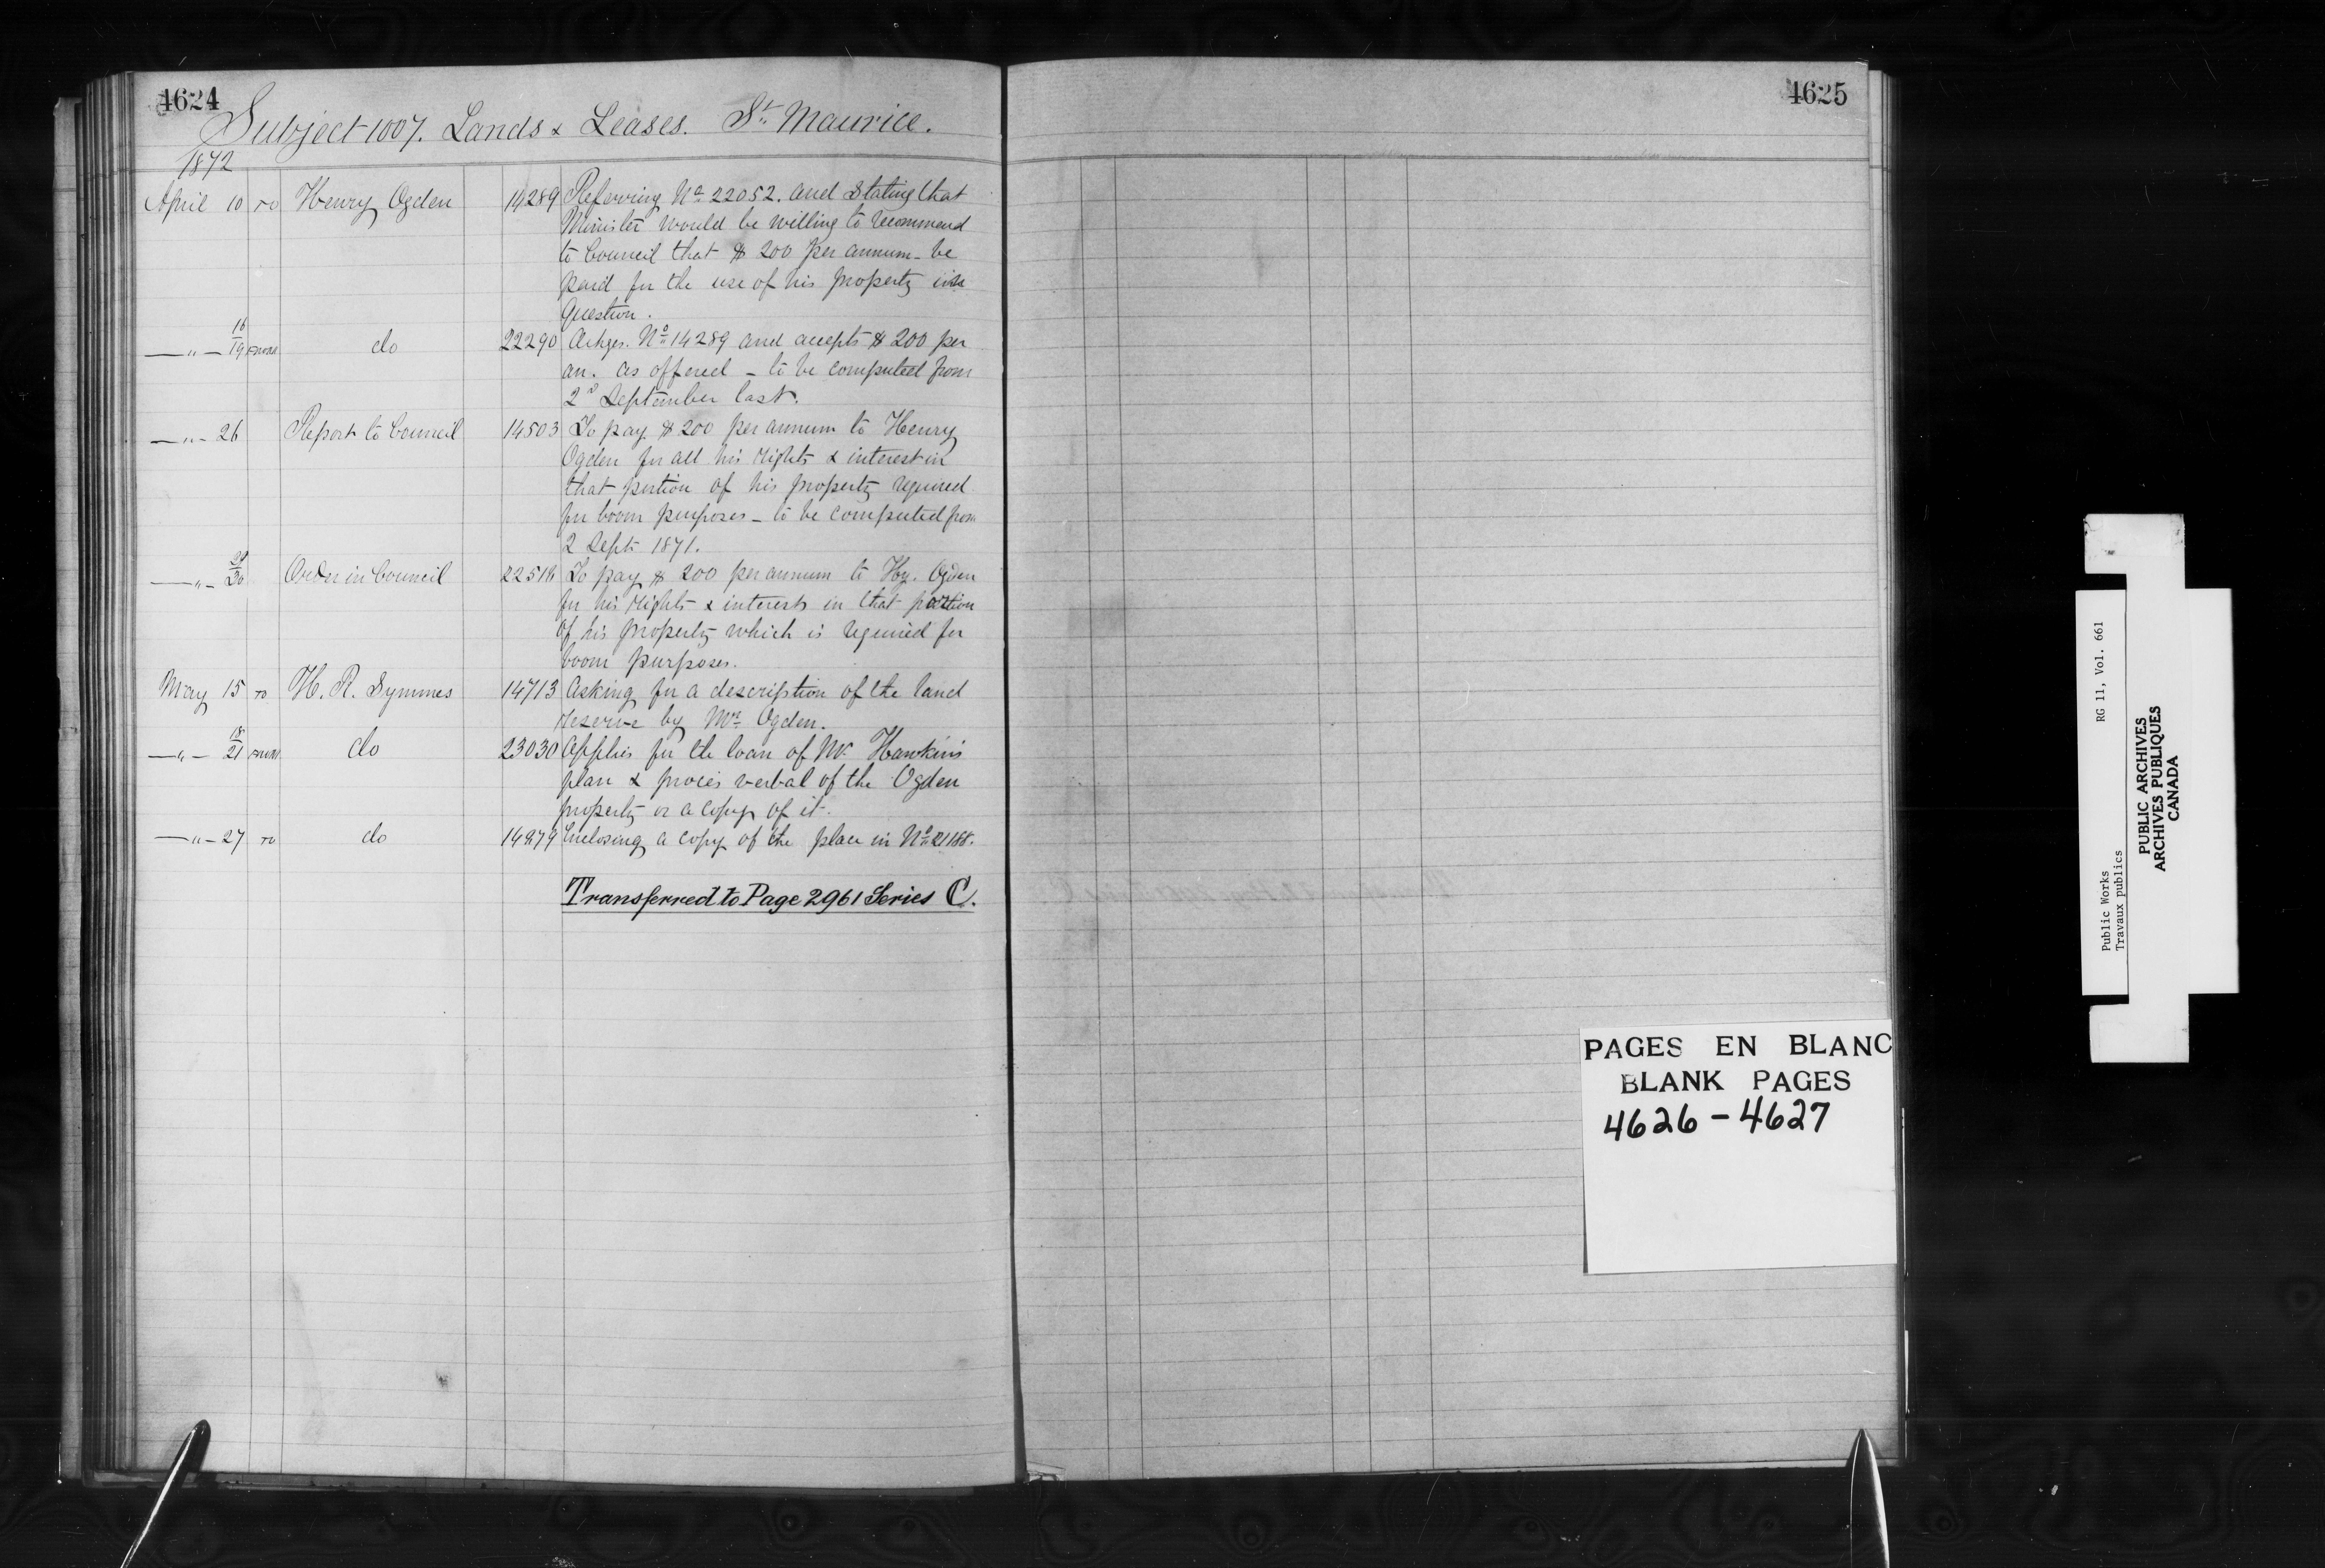 4624
Subject 1007. Lands & Leases. St. Maurice.
1872
April 10 TO Henry Ogden 14289 Referring No 22052. and stating that
Minister would be willing to recommend
to Council that $ 200 per annum - be
paid for the use of his property in
question.
—"— 16/19 FROM do 22290 Ackges. No 14289 and accepts $ 200 per
an. as offered - to be computed from
2d September last.
—"— 26 Report to Council 14503 To pay $ 200 per annum to Henry
Ogden for all his rights & interest in
that portion of his property required
for boom purposes - to be computed from
2 Sept 1871.
—"— 30 Order in Council 22518 To pay $ 200 per annum to Hy. Ogden
for his rights & interests in that portion
of his property which is required for
boom purposes.
May 15 TO H. R. Symmes 14713 Asking for a description of the land
reserve by Mr Ogden.
—"— 18/21 FROM do 23030 Applies for the loan of Mr Hawkins
plan & procès verbal of the Ogden
property or a copy of it.
—"— 27 TO do 14979 Enclosing a copy of the place in No 21188.
Transferred to Page 2961 Series C.
4625
PAGES EN BLANC
BLANK PAGES
4626 - 4627
Public Works RG 11, Vol. 661
Travaux publics
PUBLIC ARCHIVES
ARCHIVES PUBLIQUES
CANADA